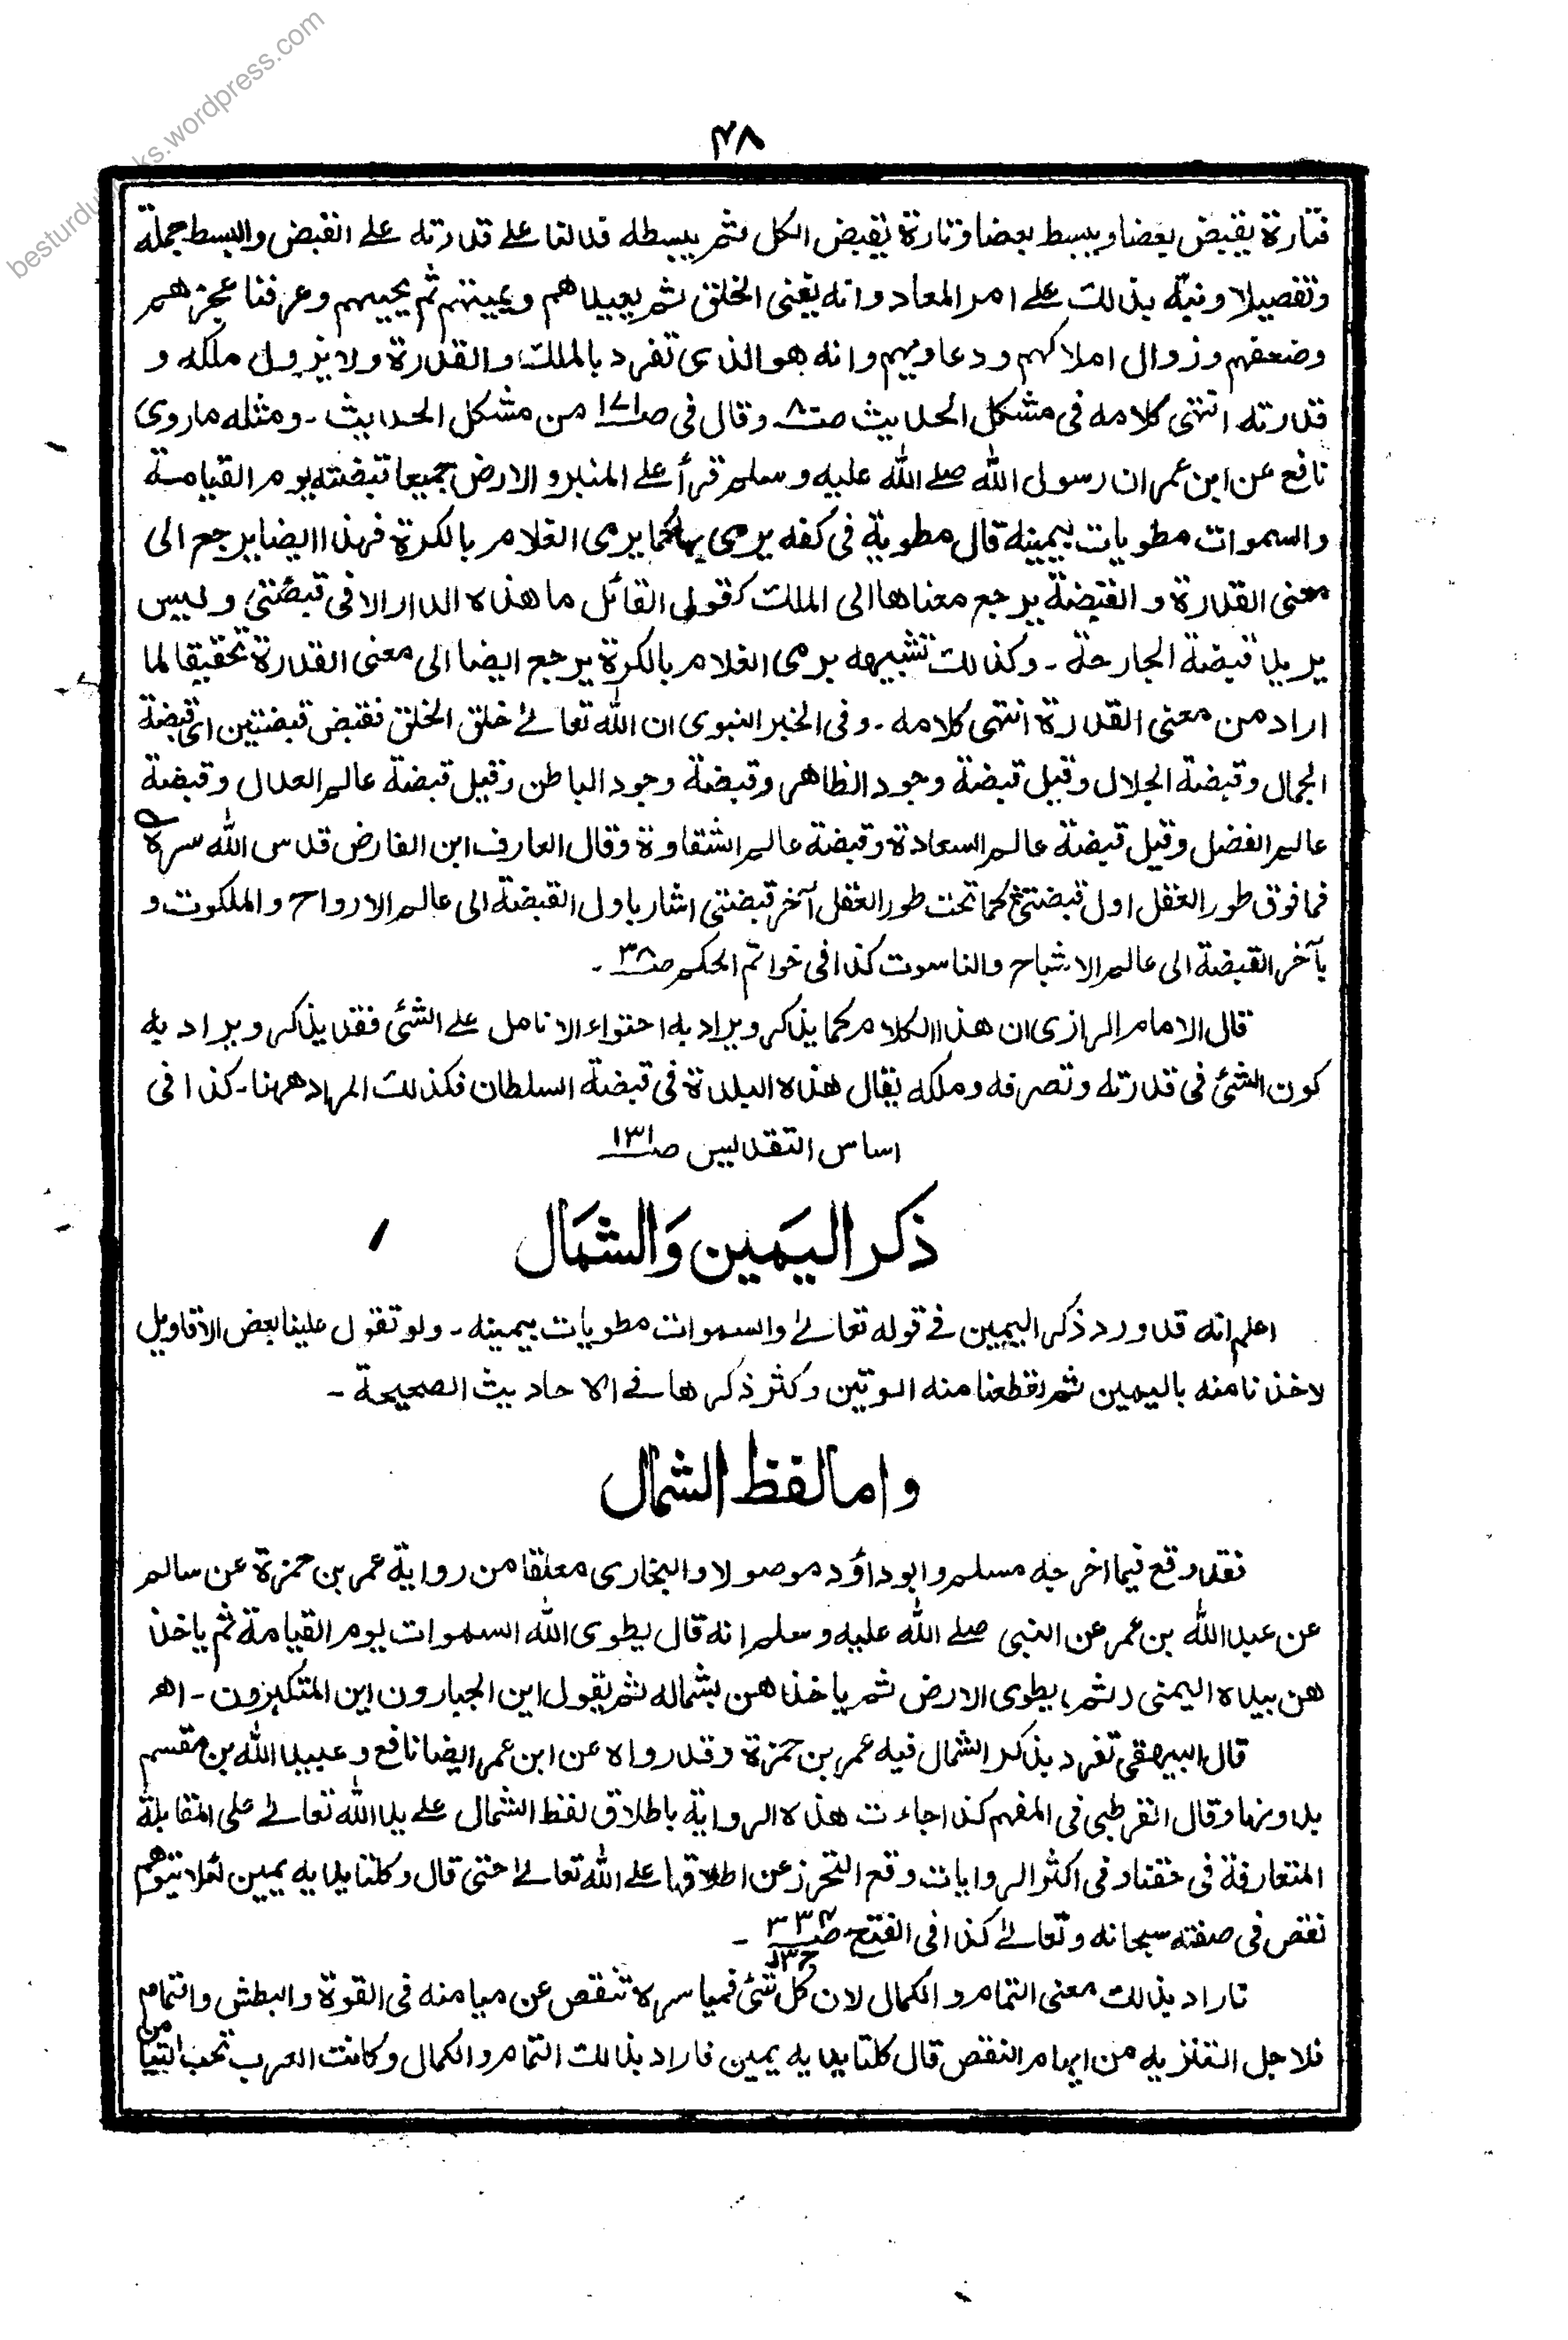 besturdubooks.wordpress.com
٣٨
فتارة يقبض بعضا ويبسط بعضا وتارة يقبض الكل ثم يبسطه فدلنا على قدرته على القبض والبسط جملة
وتفصيلا ونبّه بذلك على امر المعاد وانه يفنى الخلق ثم يعيدهم ويميتهم ثم يحييهم وعرفنا عجزهم
وضعفهم وزوال املاكهم ودعاويهم وانه هو الذى تفرد بالملك والقدرة ولا يزول ملكه و
قدرته انتهى كلامه فى مشكل الحديث صـ٨ وقال فى صـ١٧١ من مشكل الحديث - ومثله ما روى
نافع عن ابن عمر ان رسول الله صلے الله عليه وسلم قرأ على المنبر والارض جميعا قبضته يوم القيامة
والسموات مطويات بيمينه قال مطوية فى كفه يرمى بها كما يرمى الغلام بالكرة فهذا ايضا يرجع الى
معنى القدرة والقبضة يرجع معناها الى الملك كقول القائل ما هذه الدار الا فى قبضتى وليس
يريد قبضة الجارحة - وكذلك تشبيهه برمى الغلام بالكرة يرجع ايضا الى معنى القدرة تحقيقا لما
اراد من معنى القدرة انتهى كلامه - وفى الخبر النبوى ان الله تعالے خلق الخلق فقبض قبضتين اى قبضة
الجمال وقبضة الجلال وقيل قبضة وجود الظاهر وقبضة وجود الباطن وقيل قبضة عالم العدل وقبضة
عالم الفضل وقيل قبضة عالم السعادة وقبضة عالم الشقاوة وقال العارف ابن الفارض قدس الله سره
فما فوق طور العقل اول قبضتى كما تحت طور العقل آخر قبضتى اشار باول القبضة الى عالم الارواح والملكوت و
بآخر القبضة الى عالم الاشباح والناسوت كذا فى خواتم الحكم صـ٣٨ -
قال الامام الرازى ان هذا الكلام كما يذكر ويراد به احتواء الانامل على الشئ فقد يذكر ويراد به
كون الشئ فى قدرته وتصرفه وملكه يقال هذه البلدة فى قبضة السلطان فكذلك المراد ههنا - كذا فى
اساس التقديس صـ١٣١
ذكر اليَمين وَالشمَال
اعلم انه قد ورد ذكر اليمين فے قوله تعالے والسموات مطويات بيمينه - ولو تقول علينا بعض الاقاويل
لاخذنا منه باليمين ثم لقطعنا منه الوتين وكثر ذكرها فے الاحاديث الصحيحة -
واما لفظ الشمال
فقد وقع فيما اخرجه مسلم وابو داؤد موصولا والبخارى معلقا من رواية عمر بن حمزة عن سالم
عن عبد الله بن عمر عن النبى صلے الله عليه وسلم انه قال يطوى الله السموات يوم القيامة ثم ياخذ
هن بيده اليمنى (ثم) يطوى الارض ثم ياخذهن بشماله ثم يقول اين الجبارون اين المتكبرون - اهـ
قال البيهقى تفرد بذكر الشمال فيه عمر بن حمزة وقد رواه عن ابن عمر ايضا نافع وعبيد الله بن مقسم
بدونها وقال القرطبى فى المفهم كذا جاءت هذه الرواية باطلاق لفظ الشمال على يد الله تعالے على المقابلة
المتعارفة فى حقنا وفى اكثر الروايات وقع التحرز عن اطلاقها على الله تعالے حتى قال وكلتا يديه يمين لئلا يتوهم
نقص فى صفته سبحانه وتعالے كذا فى الفتح صـ٣٣٤ ج١٣ -
فاراد بذلك معنى التمام والكمال لان كل شئ فمياسره تنقص عن ميامنه فى القوة والبطش والتمام
فلاجل التنزيه من ايهام النقص قال كلتا يديه يمين فاراد بذلك التمام والكمال وكانت العرب تحب التيامن